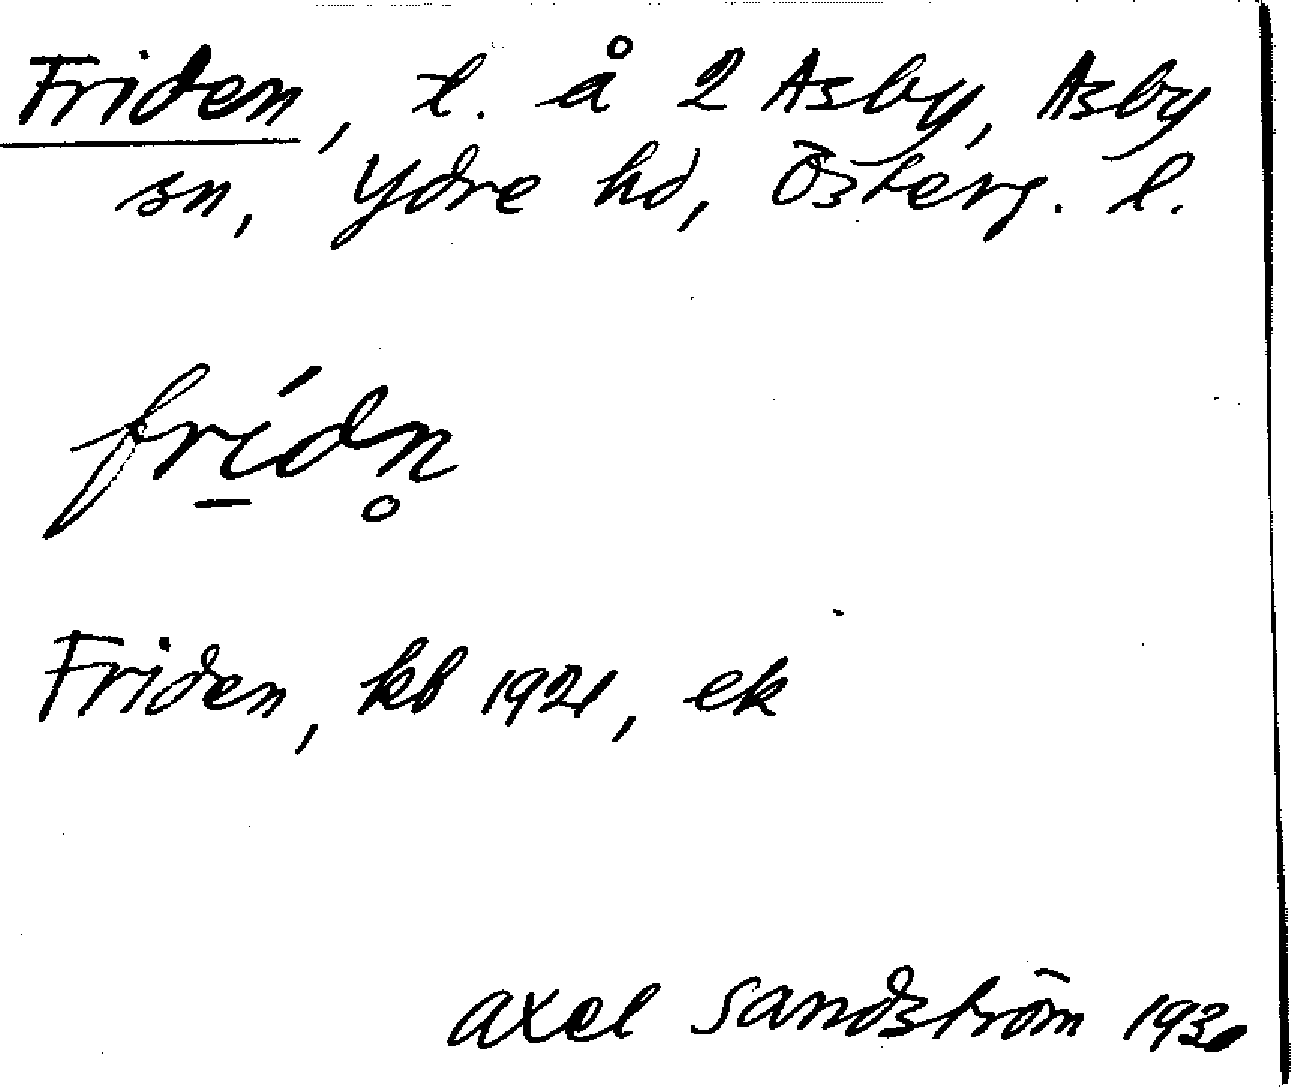 Friden, t. å 2 Asby, Asby
sn, Ydre hd, Österg. l.
frí̲dn̥
Friden, kb 1921, ek
axel sandström